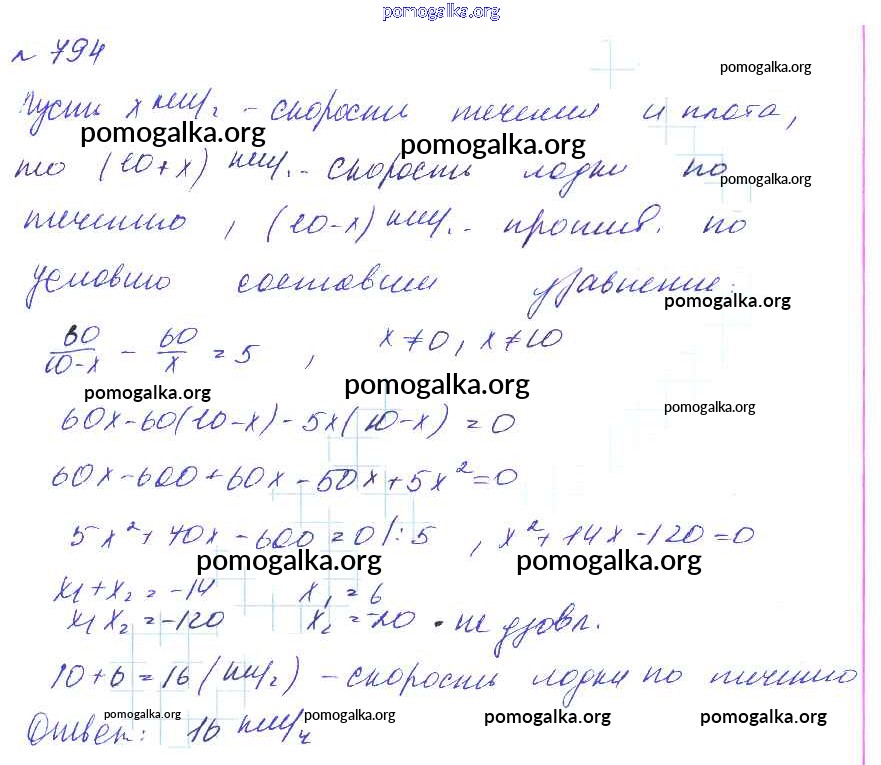 pomogalka.org
№ 794
pomogalka.org
Пусть x км/ч - скорость течения и плота,
pomogalka.org pomogalka.org
то (10+x) км/ч - скорость лодки по
pomogalka.org
течению, (10-x) км/ч - против. по
условию составим уравнение:
pomogalka.org
60/(10-x) - 60/x = 5, x≠0, x≠10
pomogalka.org pomogalka.org
pomogalka.org
60x-60(10-x)-5x(10-x)=0
60x-600+60x-50x+5x²=0
5x²+70x-600=0 |:5, x²+14x-120=0
pomogalka.org pomogalka.org
x₁+x₂=-14 x₁=6
x₁x₂=-120 x₂=-20 - не удовл.
10+6=16 (км/ч) - скорость лодки по течению
pomogalka.org pomogalka.org pomogalka.org pomogalka.org
Ответ: 16 км/ч